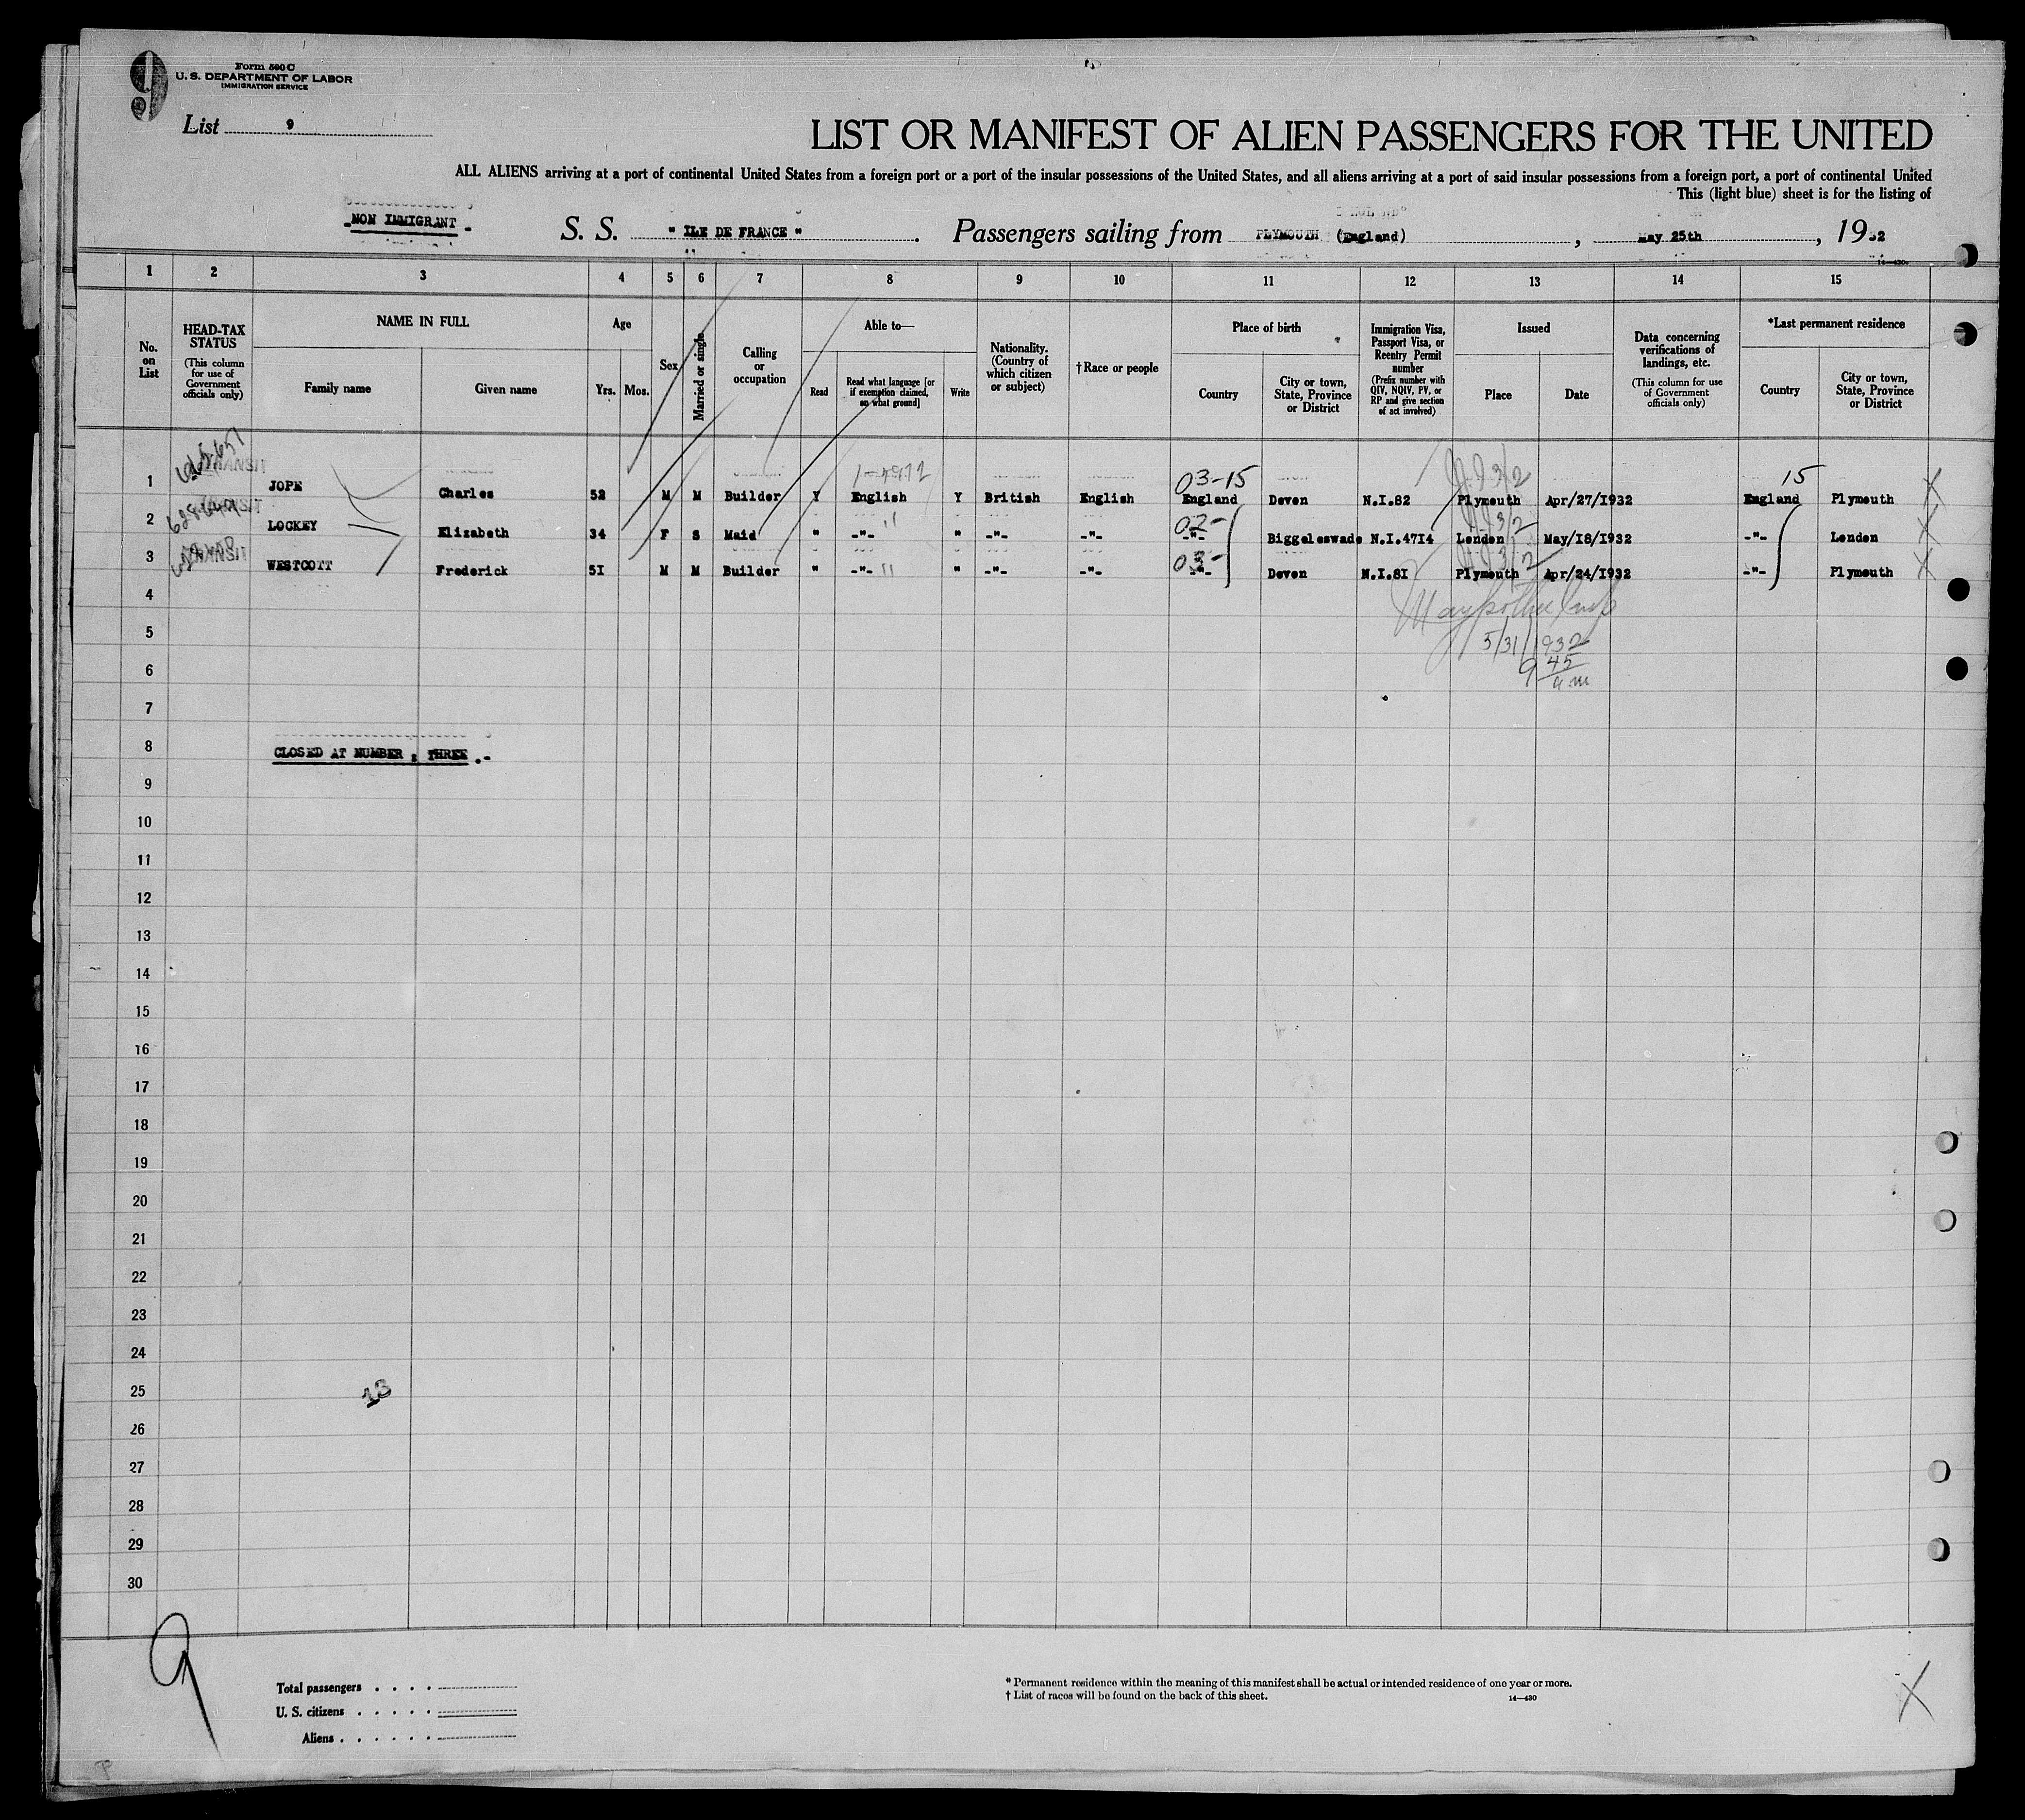 9
Form 500 C
U. S. DEPARTMENT OF LABOR
IMMIGRATION SERVICE
List 9
LIST OR MANIFEST OF ALIEN PASSENGERS FOR THE UNITED
ALL ALIENS arriving at a port of continental United States from a foreign port or a port of the insular possessions of the United States, and all aliens arriving at a port of said insular possessions from a foreign port, a port of continental United
This (light blue) sheet is for the listing of
- NON IMMIGRANT - S. S. " ILE DE FRANCE " . Passengers sailing from PLYMOUTH (England) , May 25th , 1932
14—430
1 2 3 4 5 6 7 8 9 10 11 12 13 14 15
No. on List
HEAD-TAX STATUS (This column for use of Government officials only)
NAME IN FULL
Family name Given name
Age
Yrs. Mos.
Sex
Married or single
Calling or occupation
Able to—
Read Read what language [or if exemption claimed, on what ground] Write
Nationality. (Country of which citizen or subject)
† Race or people
Place of birth
Country City or town, State, Province or District
Immigration Visa, Passport Visa, or Reentry Permit number (Prefix number with QIV, NQIV, PV, or RP and give section of act involved)
Issued
Place Date
Data concerning verifications of landings, etc. (This column for use of Government officials only)
*Last permanent residence
Country City or town, State, Province or District
03-15 15
1 TRANSIT JOPE Charles 52 M M Builder Y English Y British English England Devon N.I.82 Plymouth Apr/27/1932 England Plymouth X
02-
2 TRANSIT LOCKEY Elizabeth 34 F S Maid " -"- " -"- -"- -"- Biggeleswade N.I.4714 London May/18/1932 -"- London X
03-
3 TRANSIT WESTCOTT Frederick 51 M M Builder " -"- " -"- -"- -"- Devon N.I.81 Plymouth Apr/24/1932 -"- Plymouth X
4
5 5/31/1932
6 9 45 a m
7
8 CLOSED AT NUMBER : THREE .-
9
10
11
12
13
14
15
16
17
18
19
20
21
22
23
24
25 13
26
27
28
29
30
9
Total passengers . . . .
U. S. citizens . . . . .
Aliens . . . . . .
* Permanent residence within the meaning of this manifest shall be actual or intended residence of one year or more.
† List of races will be found on the back of this sheet. 14—430
X